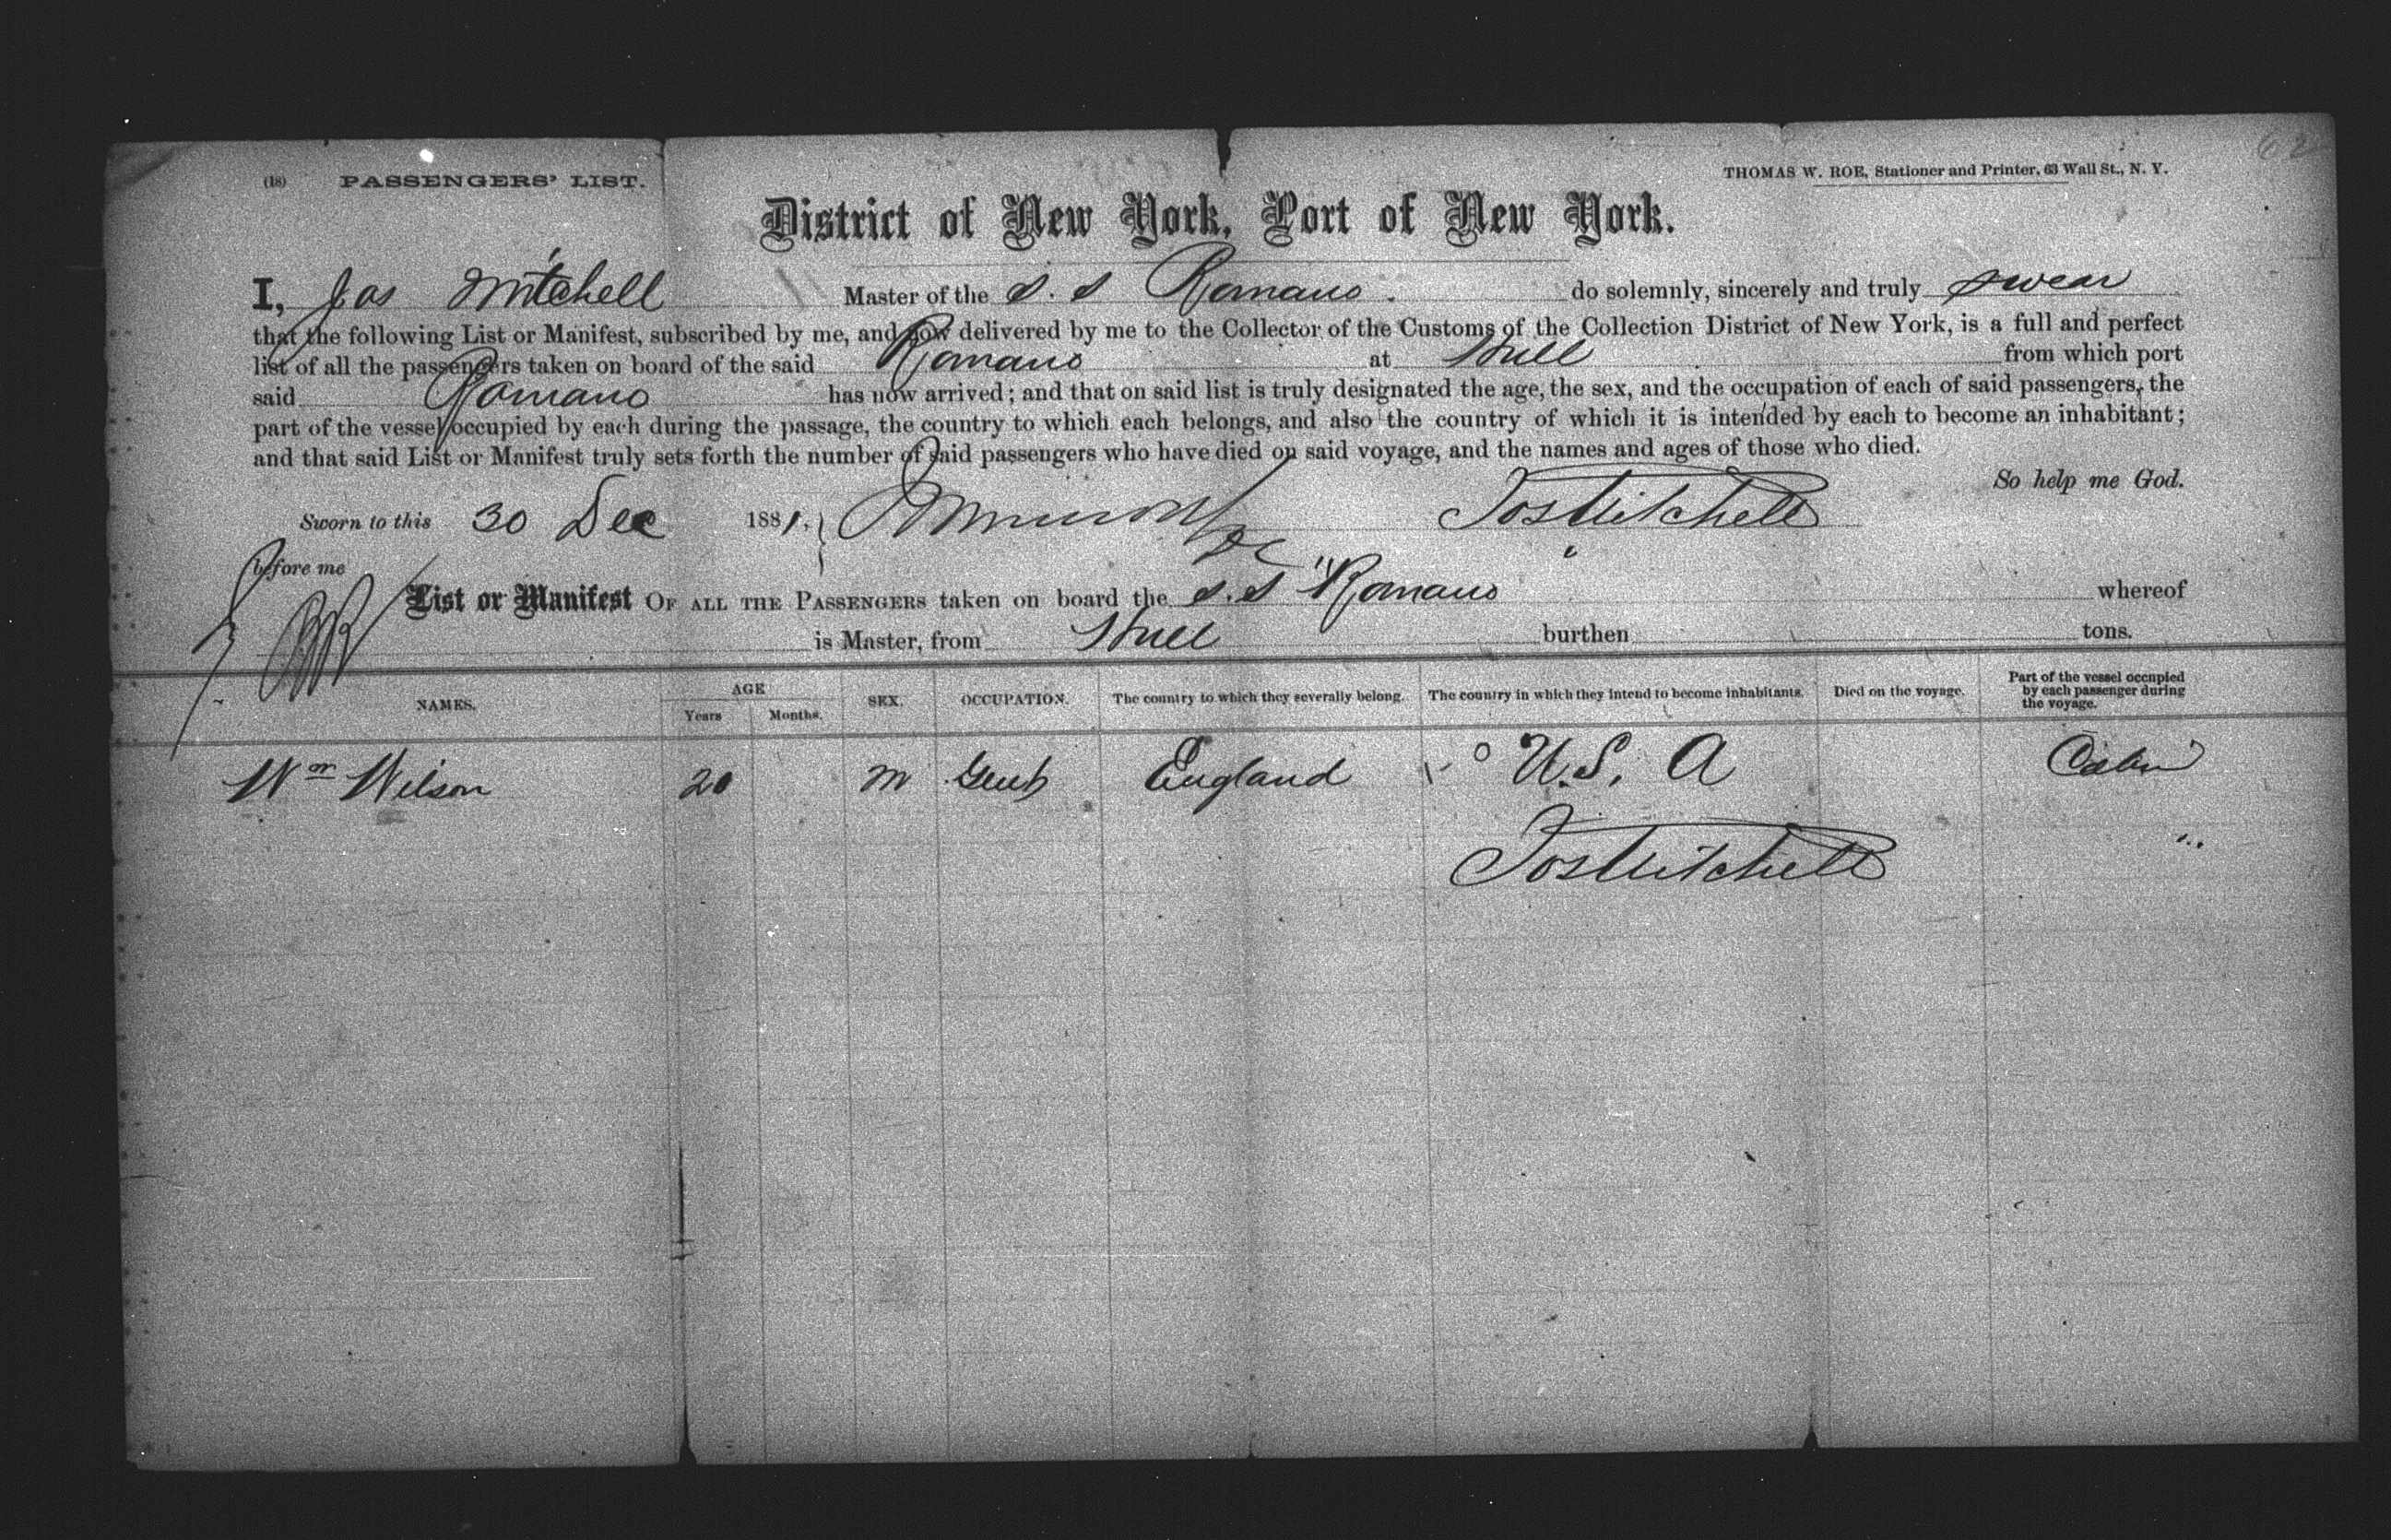 62
(18) PASSENGERS' LIST.
THOMAS W. ROE, Stationer and Printer, 63 Wall St., N. Y.
District of New York, Port of New York.
I, Jas Mitchell Master of the S. S Romano. do solemnly, sincerely and truly swear
that the following List or Manifest, subscribed by me, and now delivered by me to the Collector of the Customs of the Collection District of New York, is a full and perfect
list of all the passengers taken on board of the said Romano at Hull from which port
said Romano has now arrived; and that on said list is truly designated the age, the sex, and the occupation of each of said passengers, the
part of the vessel occupied by each during the passage, the country to which each belongs, and also the country of which it is intended by each to become an inhabitant;
and that said List or Manifest truly sets forth the number of said passengers who have died on said voyage, and the names and ages of those who died.
So help me God.
Sworn to this 30 Dec 1881, Jas Mitchell
before me
List or Manifest OF ALL THE PASSENGERS taken on board the S. S "Romano whereof
is Master, from Hull burthen tons.
NAMES. AGE Years Months. SEX. OCCUPATION. The country to which they severally belong. The country in which they intend to become inhabitants. Died on the voyage. Part of the vessel occupied by each passenger during the voyage.
Wm Wilson 20 M Gent England U. S. A Cabin
Jas Mitchell